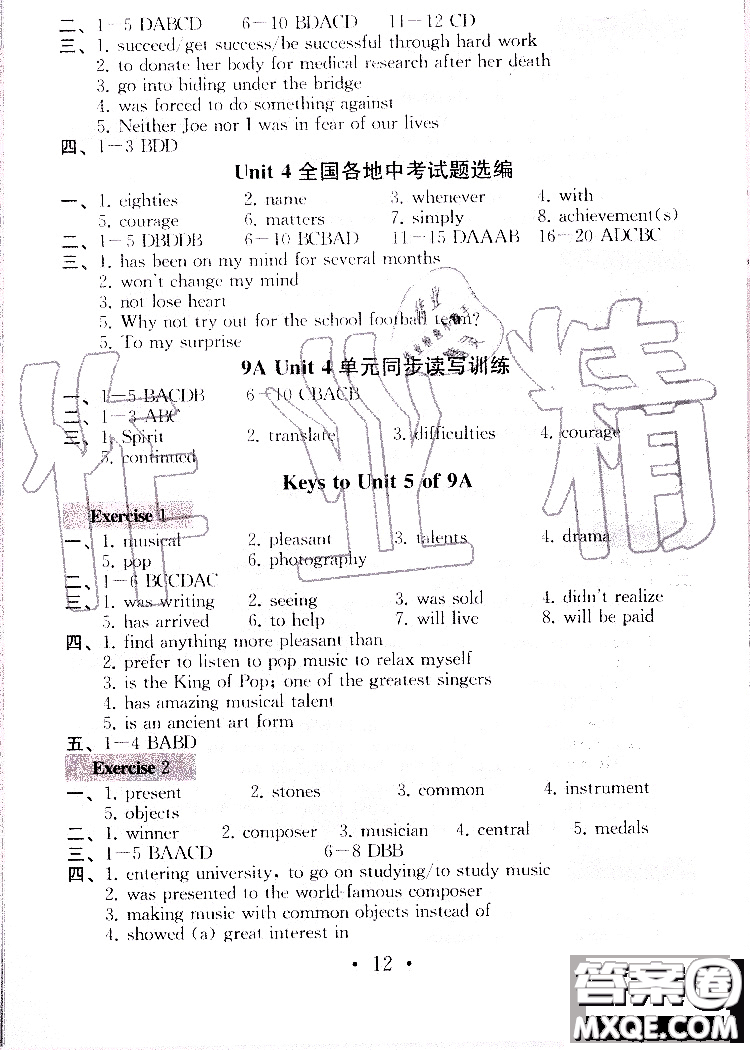 二、1－5 DABCD 6－10 BDACD 11－12 CD
三、1. succeed/get success/be successful through hard work
2. to donate her body for medical research after her death
3. go into hiding under the bridge
4. was forced to do something against
5. Neither Joe nor I was in fear of our lives
四、1－3 BDD
Unit 4 全国各地中考试题选编
一、1. eighties 2. name 3. whenever 4. with
5. courage 6. matters 7. simply 8. achievement(s)
二、1－5 DBDDB 6－10 BCBAD 11－15 DAAAB 16－20 ADCBC
三、1. has been on my mind for several months
2. won't change my mind
3. not lose heart
5. Why not try out for the school football team?
5. To my surprise
9A Unit 4 单元同步读写训练
一、1－5 BACDB 6－10 CBACB
二、1－3 ABC
三、1. Spirit 2. translate 3. difficulties 4. courage
5. continued
Keys to Unit 5 of 9A
Exercise 1
一、1. musical 2. pleasant 3. talents 4. drama
5. pop 6. photography
二、1－6 BCCDAC
三、1. was writing 2. seeing 3. was sold 4. didn't realize
5. has arrived 6. to help 7. will live 8. will be paid
四、1. find anything more pleasant than
2. prefer to listen to pop music to relax myself
3. is the King of Pop; one of the greatest singers
4. has amazing musical talent
5. is an ancient art form
五、1－4 BABD
Exercise 2
一、1. present 2. stones 3. common 4. instrument
5. objects
二、1. winner 2. composer 3. musician 4. central 5. medals
三、1－5 BAACD 6－8 DBB
四、1. entering university, to go on studying/to study music
2. was presented to the world-famous composer
3. making music with common objects instead of
4. showed (a) great interest in
· 12 ·
作业精
答案圈
MXQE.COM